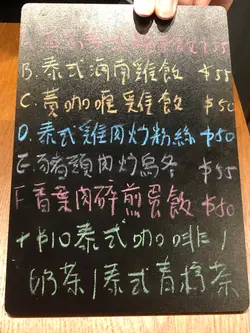 $55
B. 泰式海南雞飯 $55
C. 黃咖喱雞飯 $50
D. 泰式雞肉炒粉絲 $50
E. 豬頸肉炒烏冬 $55
F 香葉肉碎煎蛋飯 $50
+ $10 泰式咖啡 /
奶茶 / 泰式青檸茶